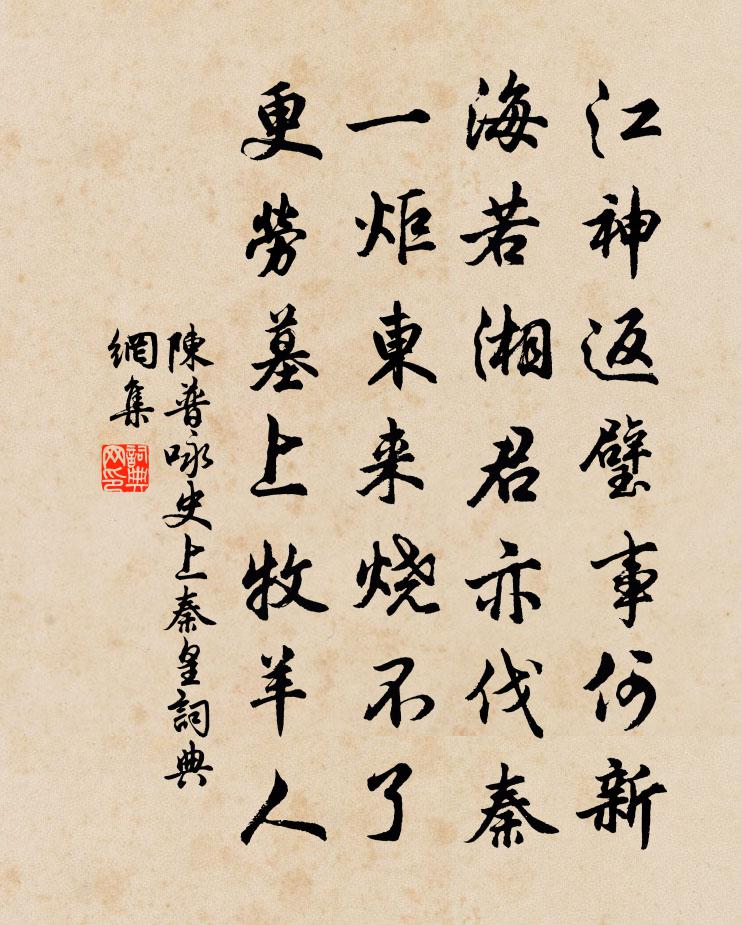 江神返璧事何新
海若湘君亦伐秦
一炬東来烧不了
更勞墓上牧羊人
陳普咏史上秦皇詞典
網集
詞典
网印